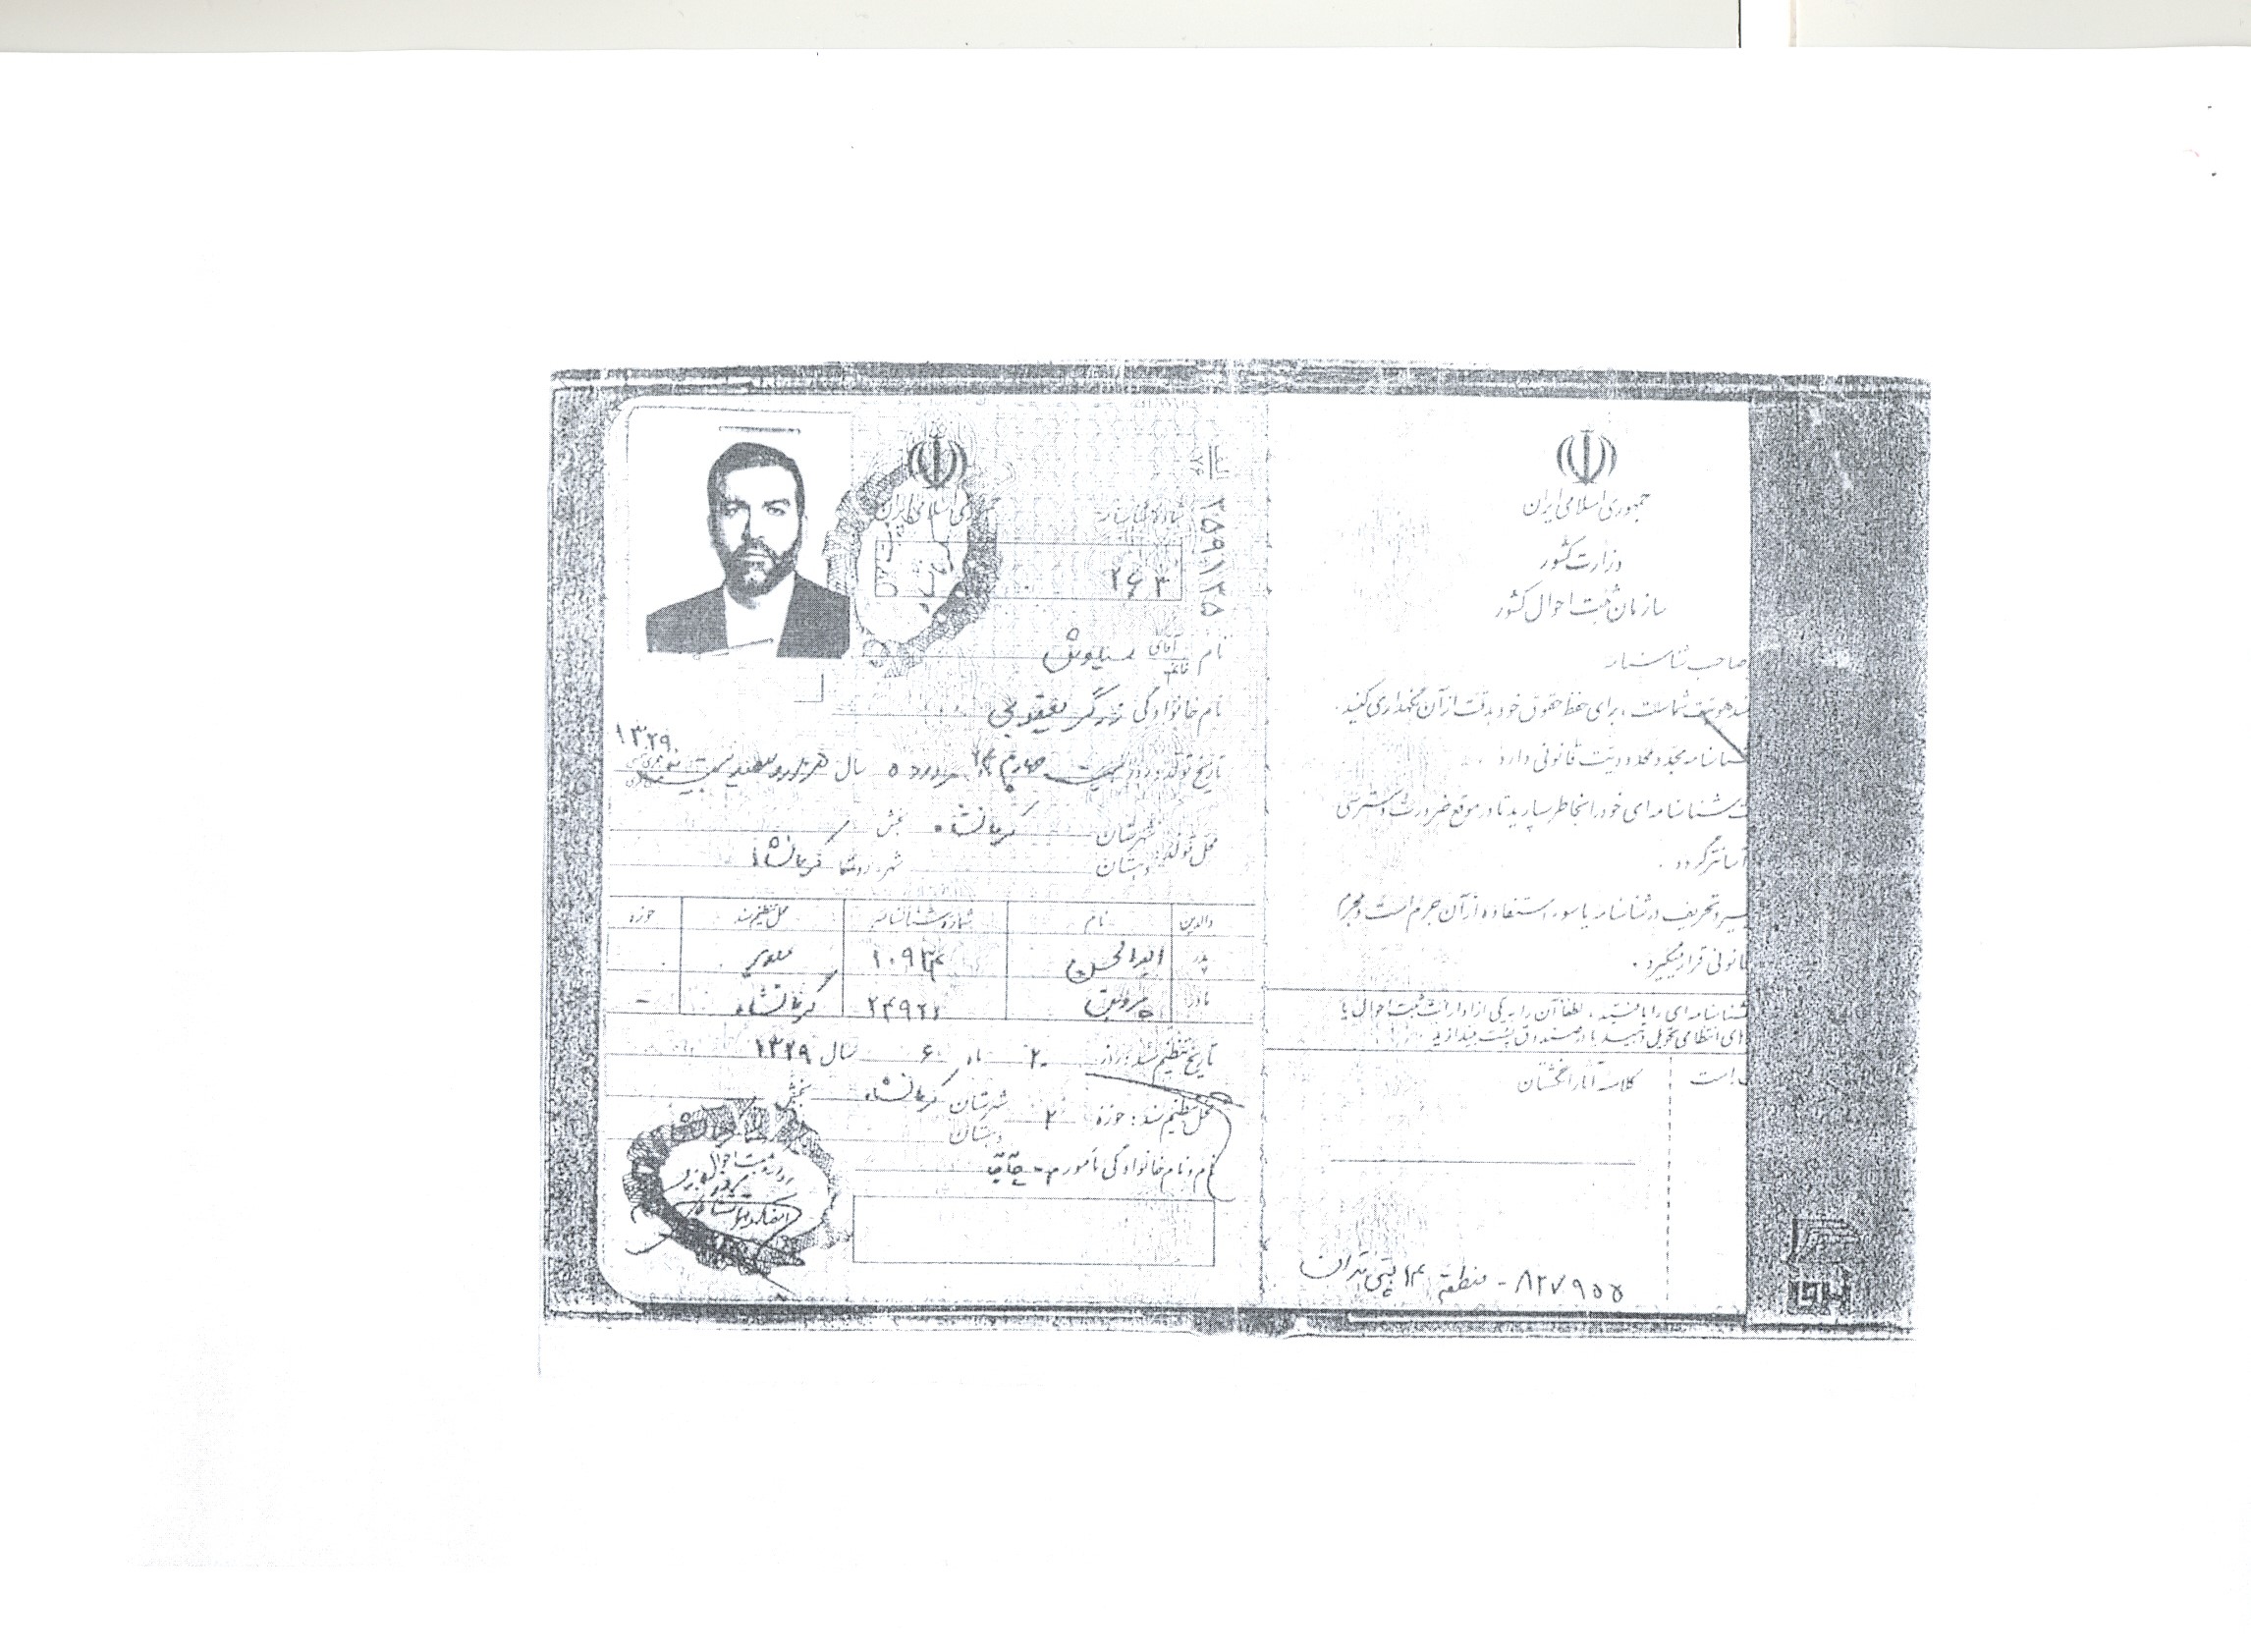 جمهوری اسلامی ایران
وزارت کشور
سازمان ثبت احوال کشور
صاحب شناسنامه
سند هویت شماست ، برای حفظ حقوق خود بدقت از آن نگهداری کنید .
شناسنامه مجدد محدودیت قانونی دارد .
شناسنامه‌ای خود را بخاطر بسپارید تا در موقع ضرورت دسترسی
آسانتر گردد .
تحریف در شناسنامه یا سوء استفاده از آن جرم است و مجرم
قانونی قرار میگیرد .
شناسنامه‌ای را یافتید ، لطفاً آن را به یکی از ادارات ثبت احوال یا
انتظامی تحویل دهید یا در صندوق پست بیندازید
است
کلاسه آثار انگشتان
۸۲۷۹۵۵ - منطقه ۱۴ پستی تهران
الف
۷۶
۲۵۹۱۳۵
جمهوری اسلامی ایران
شماره شناسنامه
۲۶۳
نام آقای خانم سیاوش
نام خانوادگی زرگر یعقوبی
۱۳۲۹
تاریخ تولد: روز بیست چهارم ۲۴ مرداد ۵ سال هزار و سیصد و بیست و نه
محل تولد: شهرستان کرمانشاه بخش
دهستان شهر کرمانشاه
والدین نام شماره شناسنامه محل تنظیم سند حوزه
پدر ابوالحسن ۱۰۹۳۴ ملایر
مادر پروین ۲۴۹۲۱ کرمانشاه -
تاریخ تنظیم سند: روز ۲۰ ماه ۶ سال ۱۳۲۹
محل تنظیم سند : حوزه ۲ شهرستان کرمانشاه بخش
دهستان
نام و نام خانوادگی مأمور
اداره ثبت احوال